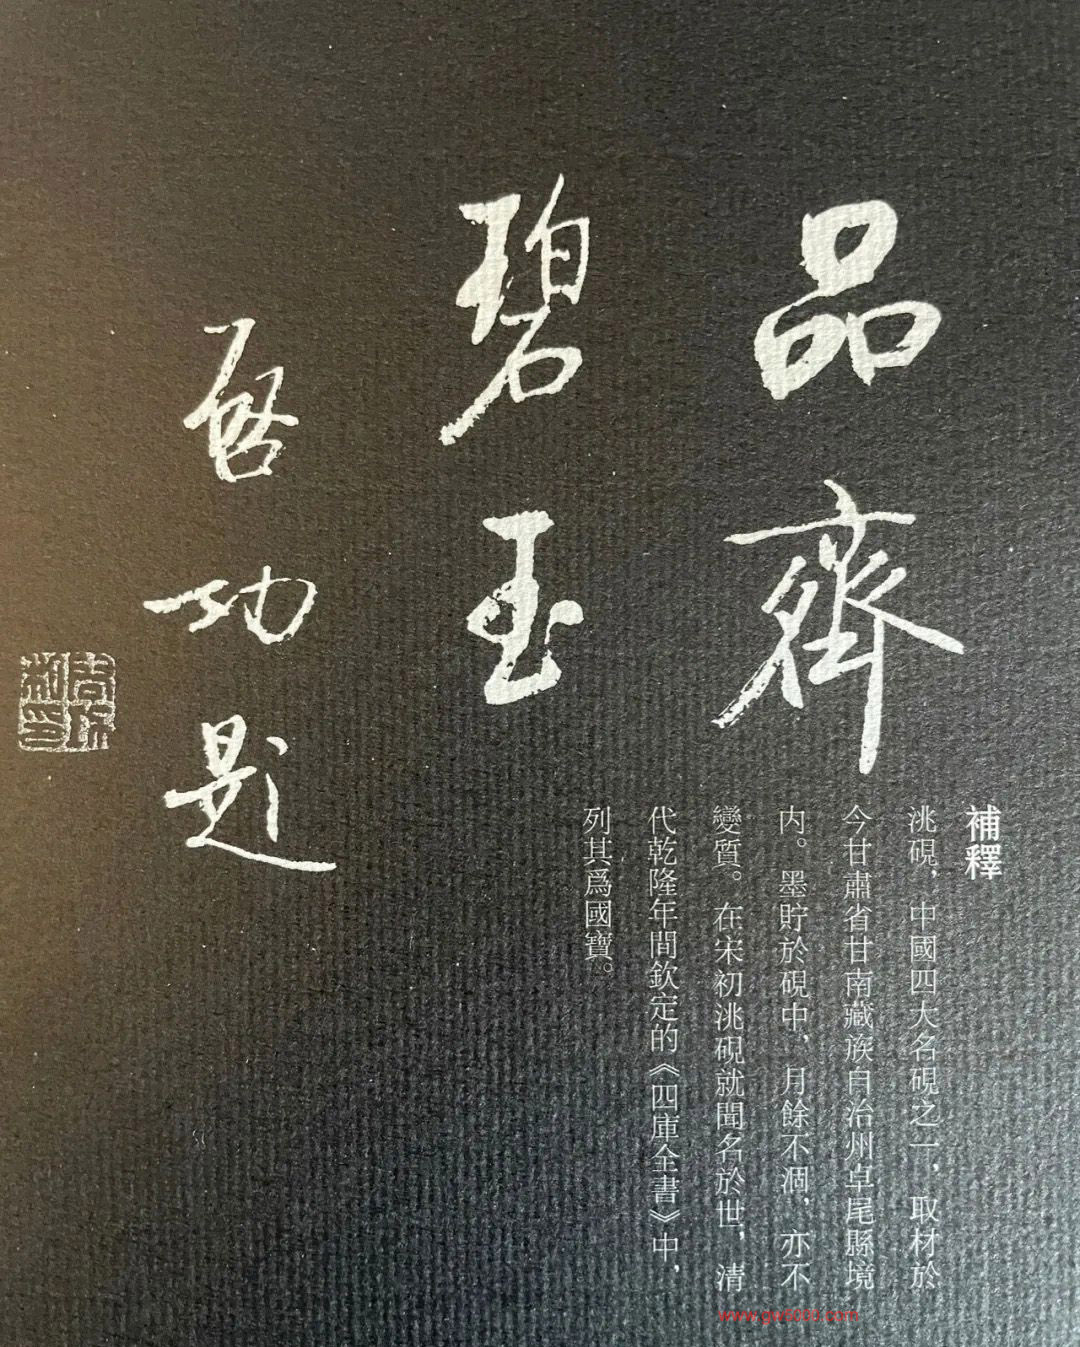 品齊
碧玉
啓功題
補釋
洮硯，中國四大名硯之一，取材於
今甘肅省甘南藏族自治州卓尾縣境
内。墨貯於硯中，月餘不涸，亦不
變質。在宋初洮硯就聞名於世，清
代乾隆年間欽定的《四庫全書》中，
列其爲國寶。
www.gw5000.com